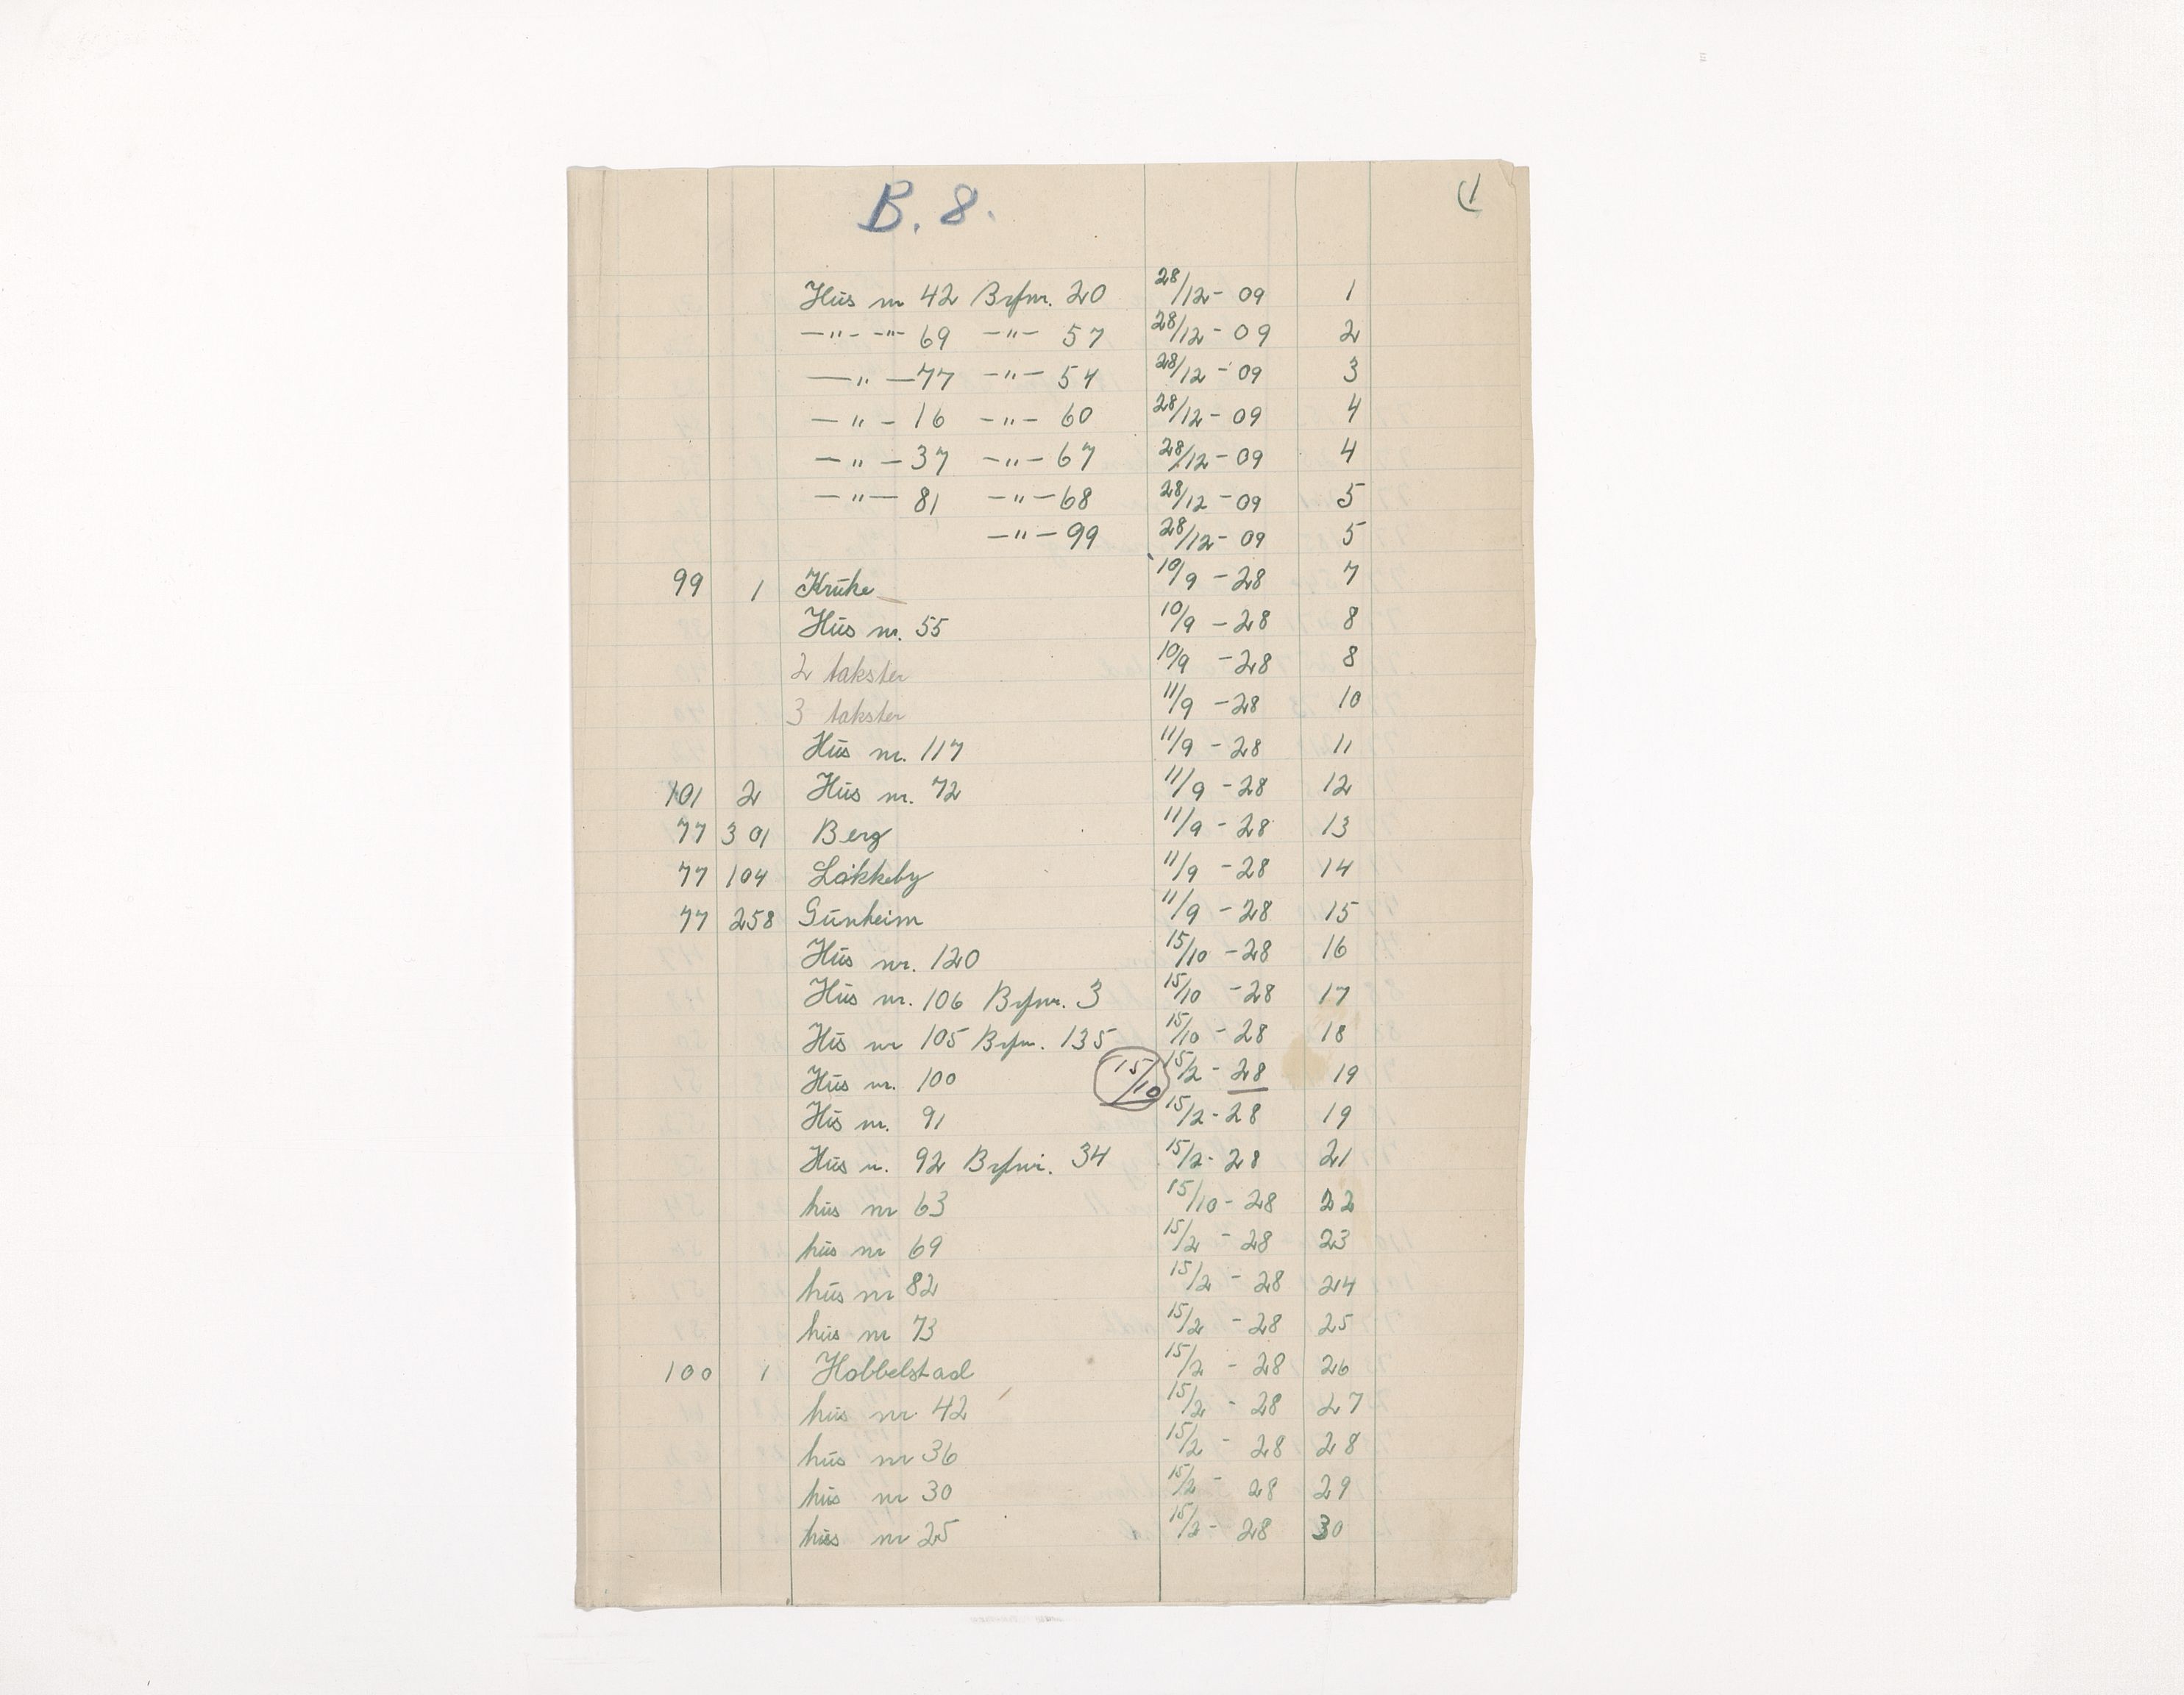 B. 8.
1
Hus nr 42 Brfnr. 20 28/12 - 09 1
—"— —"— 69 —"— 57 28/12 - 09 2
—"— 77 —"— 54 28/12 - 09 3
—"— 16 —"— 60 28/12 - 09 4
—"— 37 —"— 67 28/12 - 09 4
—"— 81 —"— 68 28/12 - 09 5
—"— 99 28/12 - 09 5
99 1 Kruke 10/9 - 28 7
Hus nr. 55 10/9 - 28 8
2 takster 10/9 - 28 8
3 takster 11/9 - 28 10
Hus nr. 117 11/9 - 28 11
101 2 Hus nr. 72 11/9 - 28 12
77 301 Berg 11/9 - 28 13
77 104 Løkkeby 11/9 - 28 14
77 258 Gunheim 11/9 - 28 15
Hus nr. 120 15/10 - 28 16
Hus nr. 106 Brfnr. 3 15/10 - 28 17
Hus nr 105 Brfnr. 135 15/10 - 28 18
Hus nr. 100 15/10 15/2 - 28 19
Hus nr. 91 15/2 - 28 19
Hus nr. 92 Brfnr. 34 15/2 - 28 21
hus nr 63 15/10 - 28 22
hus nr 69 15/2 - 28 23
hus nr 82 15/2 - 28 24
hus nr 73 15/2 - 28 25
100 1 Hobbelstad 15/2 - 28 26
hus nr. 42 15/2 - 28 27
hus nr 36 15/2 - 28 28
hus nr 30 15/2 - 28 29
hus nr 25 15/2 - 28 30